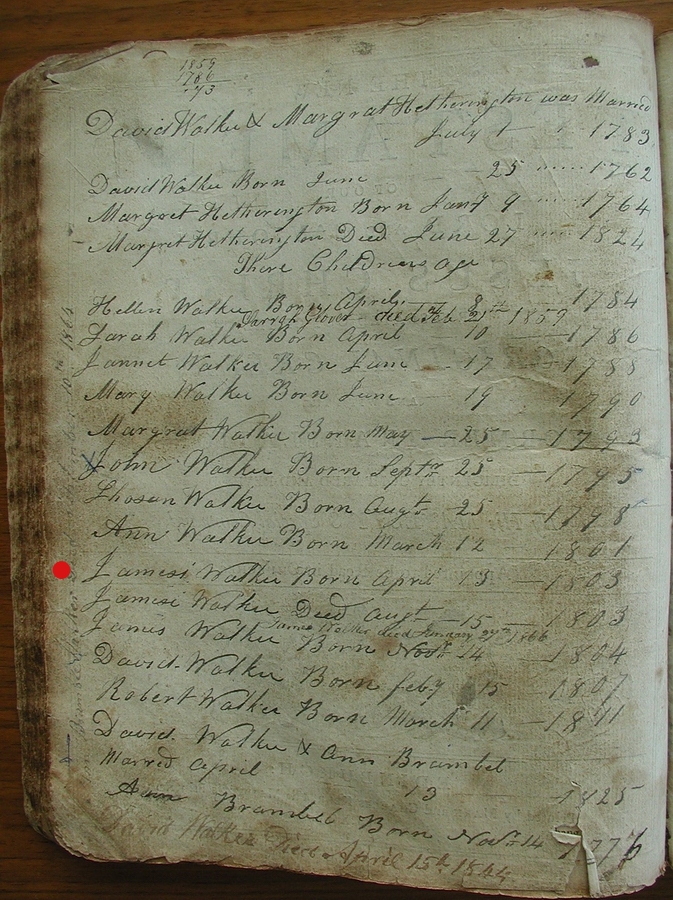 1859
1786
73
David Walker & Margrat Hetherington was Married
July 1 1783
David Walker Born June 25 1762
Margret Hetherington Born Jany 9 1764
Margret Hetherington Died June 27 1824
There Childrens age
Hellen Walker Born April 8 1784
Sarrah Glover died Feb 21th 1859
Sarah Walker Born April 10 1786
Jannet Walker Born June 17 1788
Mary Walker Born June 19 1790
Margrat Walker Born May 25 1793
John Walker Born Septr 25 1795
Walker Born Augt 25 1798
Ann Walker Born March 12 1801
James Walker Born April 13 1803
Jamese Walker Deed Augt 15 1803
James Walker died January 27th 1866
James Walker Born Novr 14 1804
David Walker Born feby 15 1807
Robert Walker Born March 11 1811
David Walker & Ann Brambel
Marred April 13 1825
Ann Brambel Born Novr 14 177
David Walker Died April 15th 1864